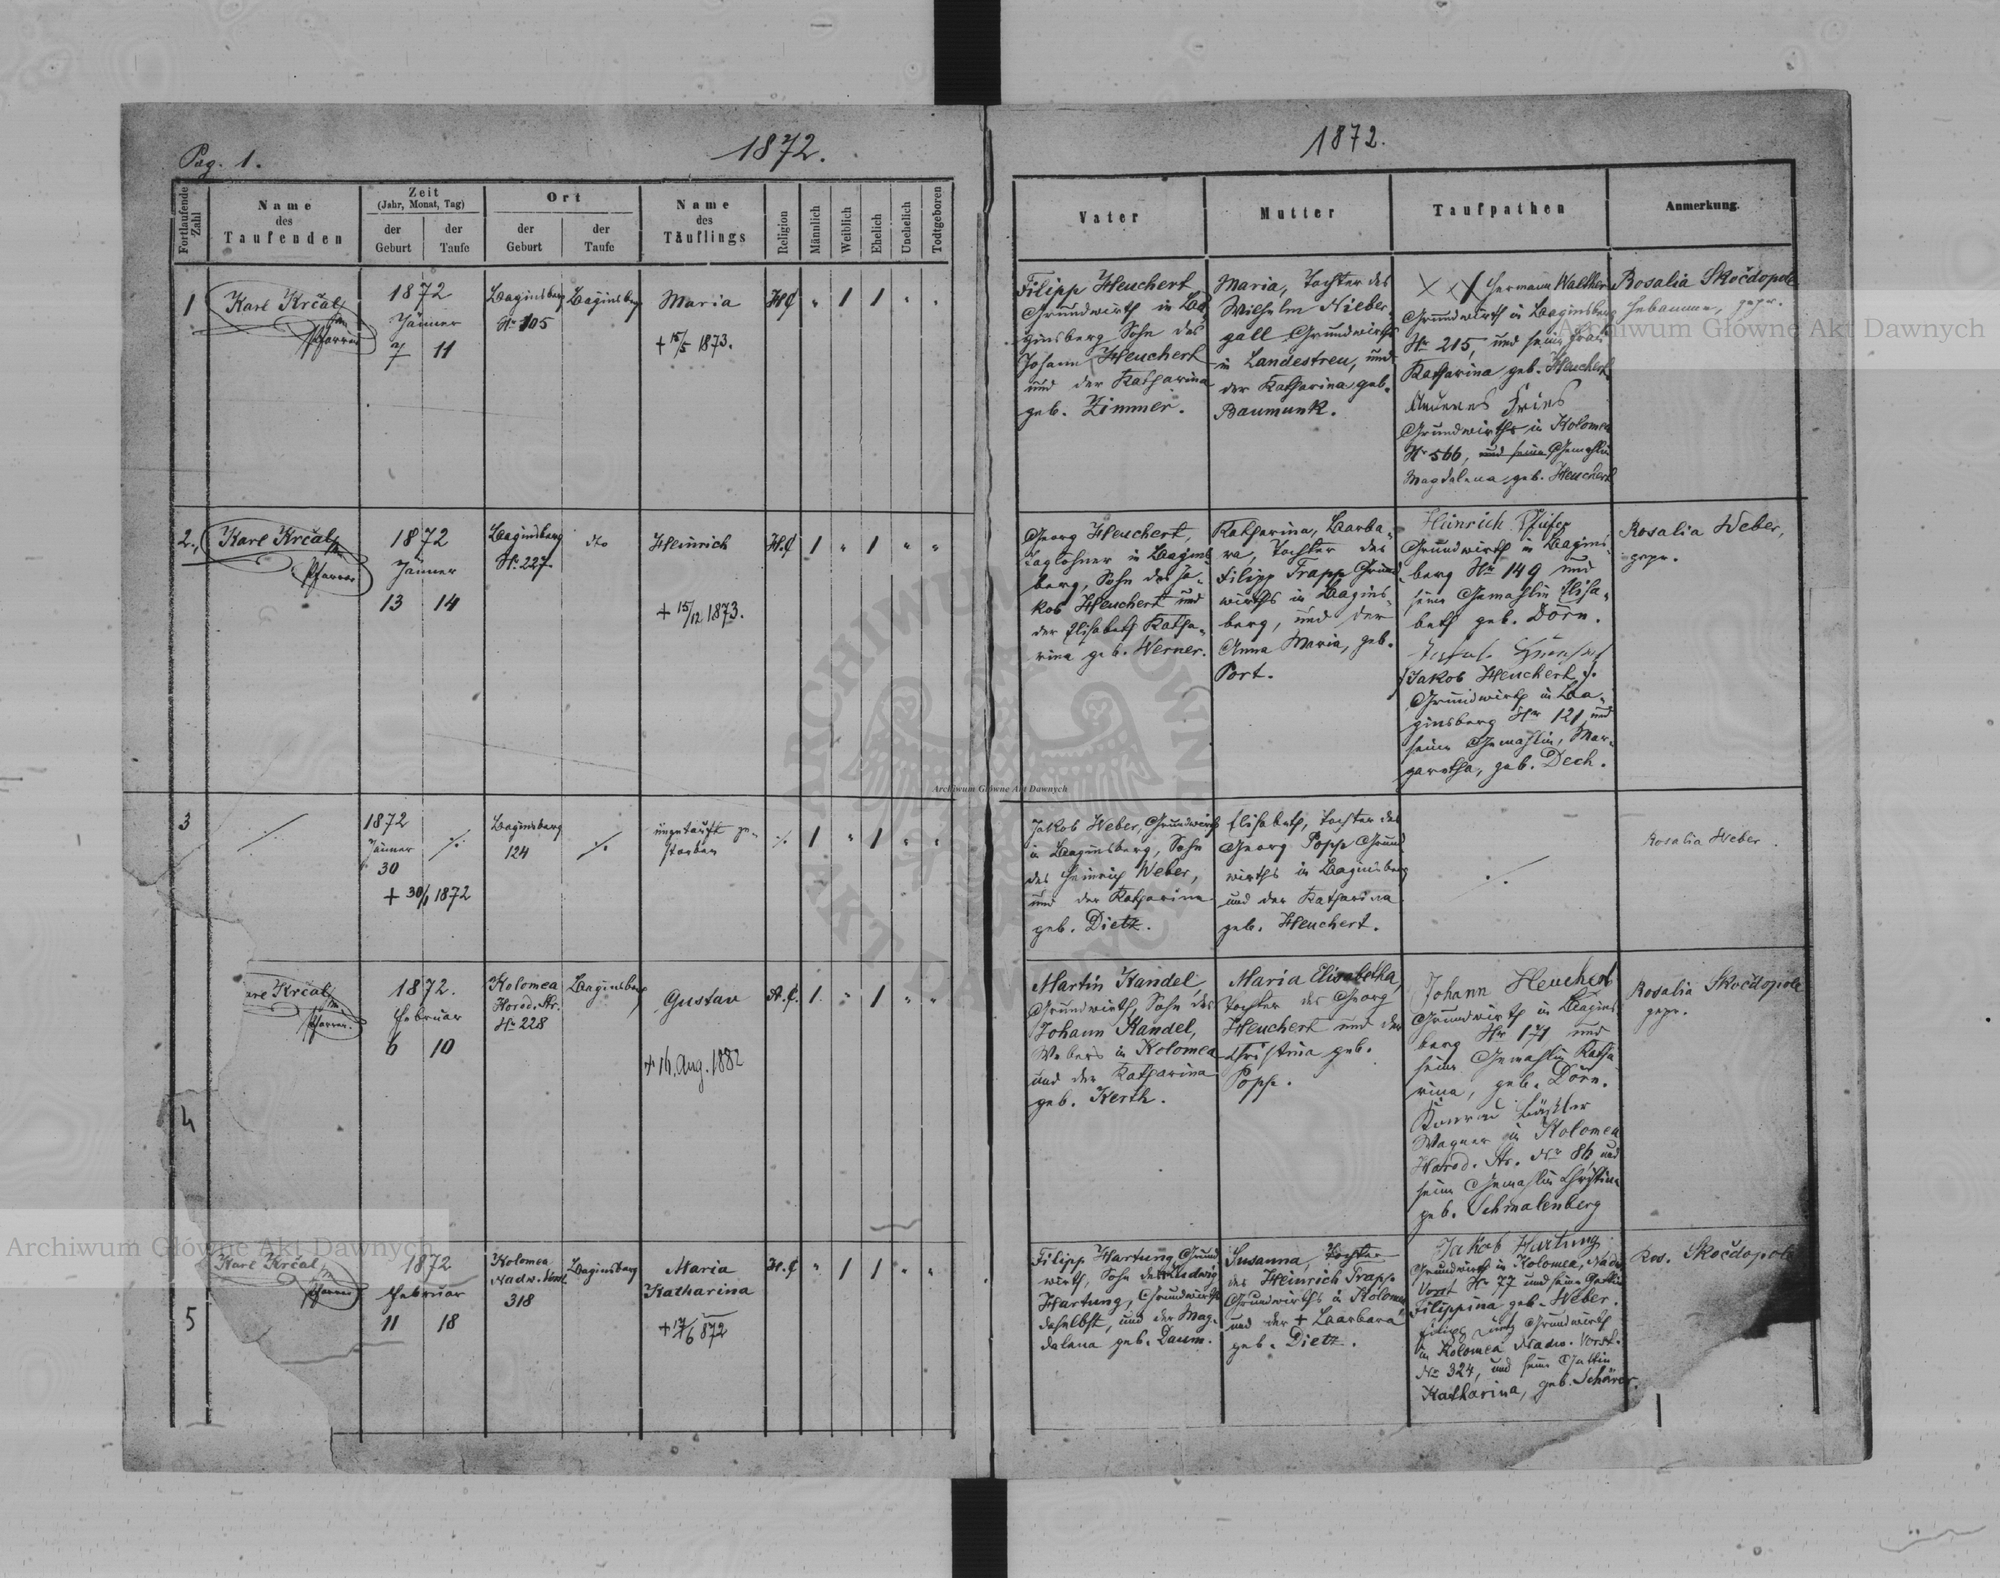 Pag. 1.
1872.
1872.
Fortlaufende Zahl
Name des Taufenden
Zeit
(Jahr, Monat, Tag)
der Geburt
der Taufe
Ort
der Geburt
der Taufe
Name des Täuflings
Religion
Männlich
Weiblich
Ehelich
Unehelich
Todtgeboren
Vater
Mutter
Taufpathen
Anmerkung.
1
Karl Krčal
Pfarrer
1872
Jänner
7 11
Baginsberg
Nr 105
Baginsberg
Maria
+ 15/5 1873.
H.C
" 1 1 " "
Filipp Heuchert,
Grundwirth in Ba-
ginsberg Sohn des
Johann Heuchert
und der Katharina
geb. Zimmer.
Maria, Tochter des
Wilhelm Nieber-
gall Grundwirths
in Landestreu, und
der Katharina geb.
Baumunk.
Hermann Walther
Grundwirth in Baginsberg
Nr 215, und seine Frau
Katharina geb. Heuchert.
Fries
Grundwirths in Kolomea
Nr 566, und seine Gemahlin
Magdalena, geb. Heuchert
Rosalia Skočdopole
Hebamme, gepr.
2.
Karl Krčal
Pfarrer
1872
Jänner
13 14
Baginsberg
Nr. 227
dto
Heinrich
+ 15/12 1873.
H.C
1 " 1 " "
Georg Heuchert,
Taglöhner in Bagins-
berg, Sohn des Ja-
kob Heuchert und
der Elisabeth Katha-
rina geb. Werner.
Katharina, Barba-
ra, Tochter des
Filipp Trapp Grund-
wirths in Bagins-
berg, und der
Anna Maria, geb.
Port.
Heinrich
Grundwirth in Bagins-
berg Nr 149 und
seine Gemahlin Elisa-
beth geb. Dörn.
Jakob Heuchert
Grundwirth in Ba-
ginsberg Nr 121, und
seine Gemahlin, Mar-
garetha, geb. Dech.
Rosalia Weber,
gepr.
3
1872
Jänner
30
+ 30/1 1872
Baginsberg
124
ungetauft ge-
storben
1 " 1 " "
Jakob Weber, Grundwirth
in Baginsberg, Sohn
des Heinrich Weber,
und der Katharina
geb. Dietz.
Elisabeth, Tochter des
Georg Popp Grund
wirths in Baginsberg
und der Katharina
geb. Heuchert.
Rosalia Weber
4
Karl Krčal
Pfarrer.
1872.
Februar
6 10
Kolomea
Horod. Str.
Nr 228
Baginsberg
Gustav
+ 16. Aug. 1882
A.C.
1. " 1 " "
Martin Kandel,
Grundwirth, Sohn des
Johann Kandel,
Webers in Kolomea
und der Katharina
geb. Kerth.
Maria Elisabetha,
Tochter des Georg
Heuchert und der
Christina geb.
Popp.
Johann Heuchert
Grundwirth in Bagins
berg Nr 171 und
seine Gemahlin Katha
rina, geb. Dörn.
Konrad
Wagner in Kolomea
Horod. Str. Nr 86 und
seine Gemahlin Christina
geb. Schmalenberg
Rosalia Skočdopole
gepr.
5
Karl Krčal
Pfarrer
1872
Februar
11 18
Kolomea
Nadw. Vorst.
318
Baginsberg
Maria
Katharina
+ 17/6 872
H.C
" 1 1 " "
Filipp Hartung, Grund
wirth, Sohn des Ludwig
Hartung, Grundwirths
daselbst, und der Mag-
dalena geb. Daum.
Susanna, Tochter
des Heinrich Trapp
Grundwirths in Kolomea
und der + Barbara
geb. Dietz.
Jakob Hartung
Grundwirth in Kolomea, Nadw.
Vorst Nr 77 und seine Gattin
Filippina geb. Weber.
Filipp Grundwirth
in Kolomea Nadw. Vorst.
Nr 324, und seine Gattin
Katharina, geb. Schärer.
Ros. Skočdopole
Archiwum Główne Akt Dawnych
Archiwum Główne Akt Dawnych
Archiwum Główne Akt Dawnych
ARCHIWUM GŁÓWNE AKT DAWNYCH